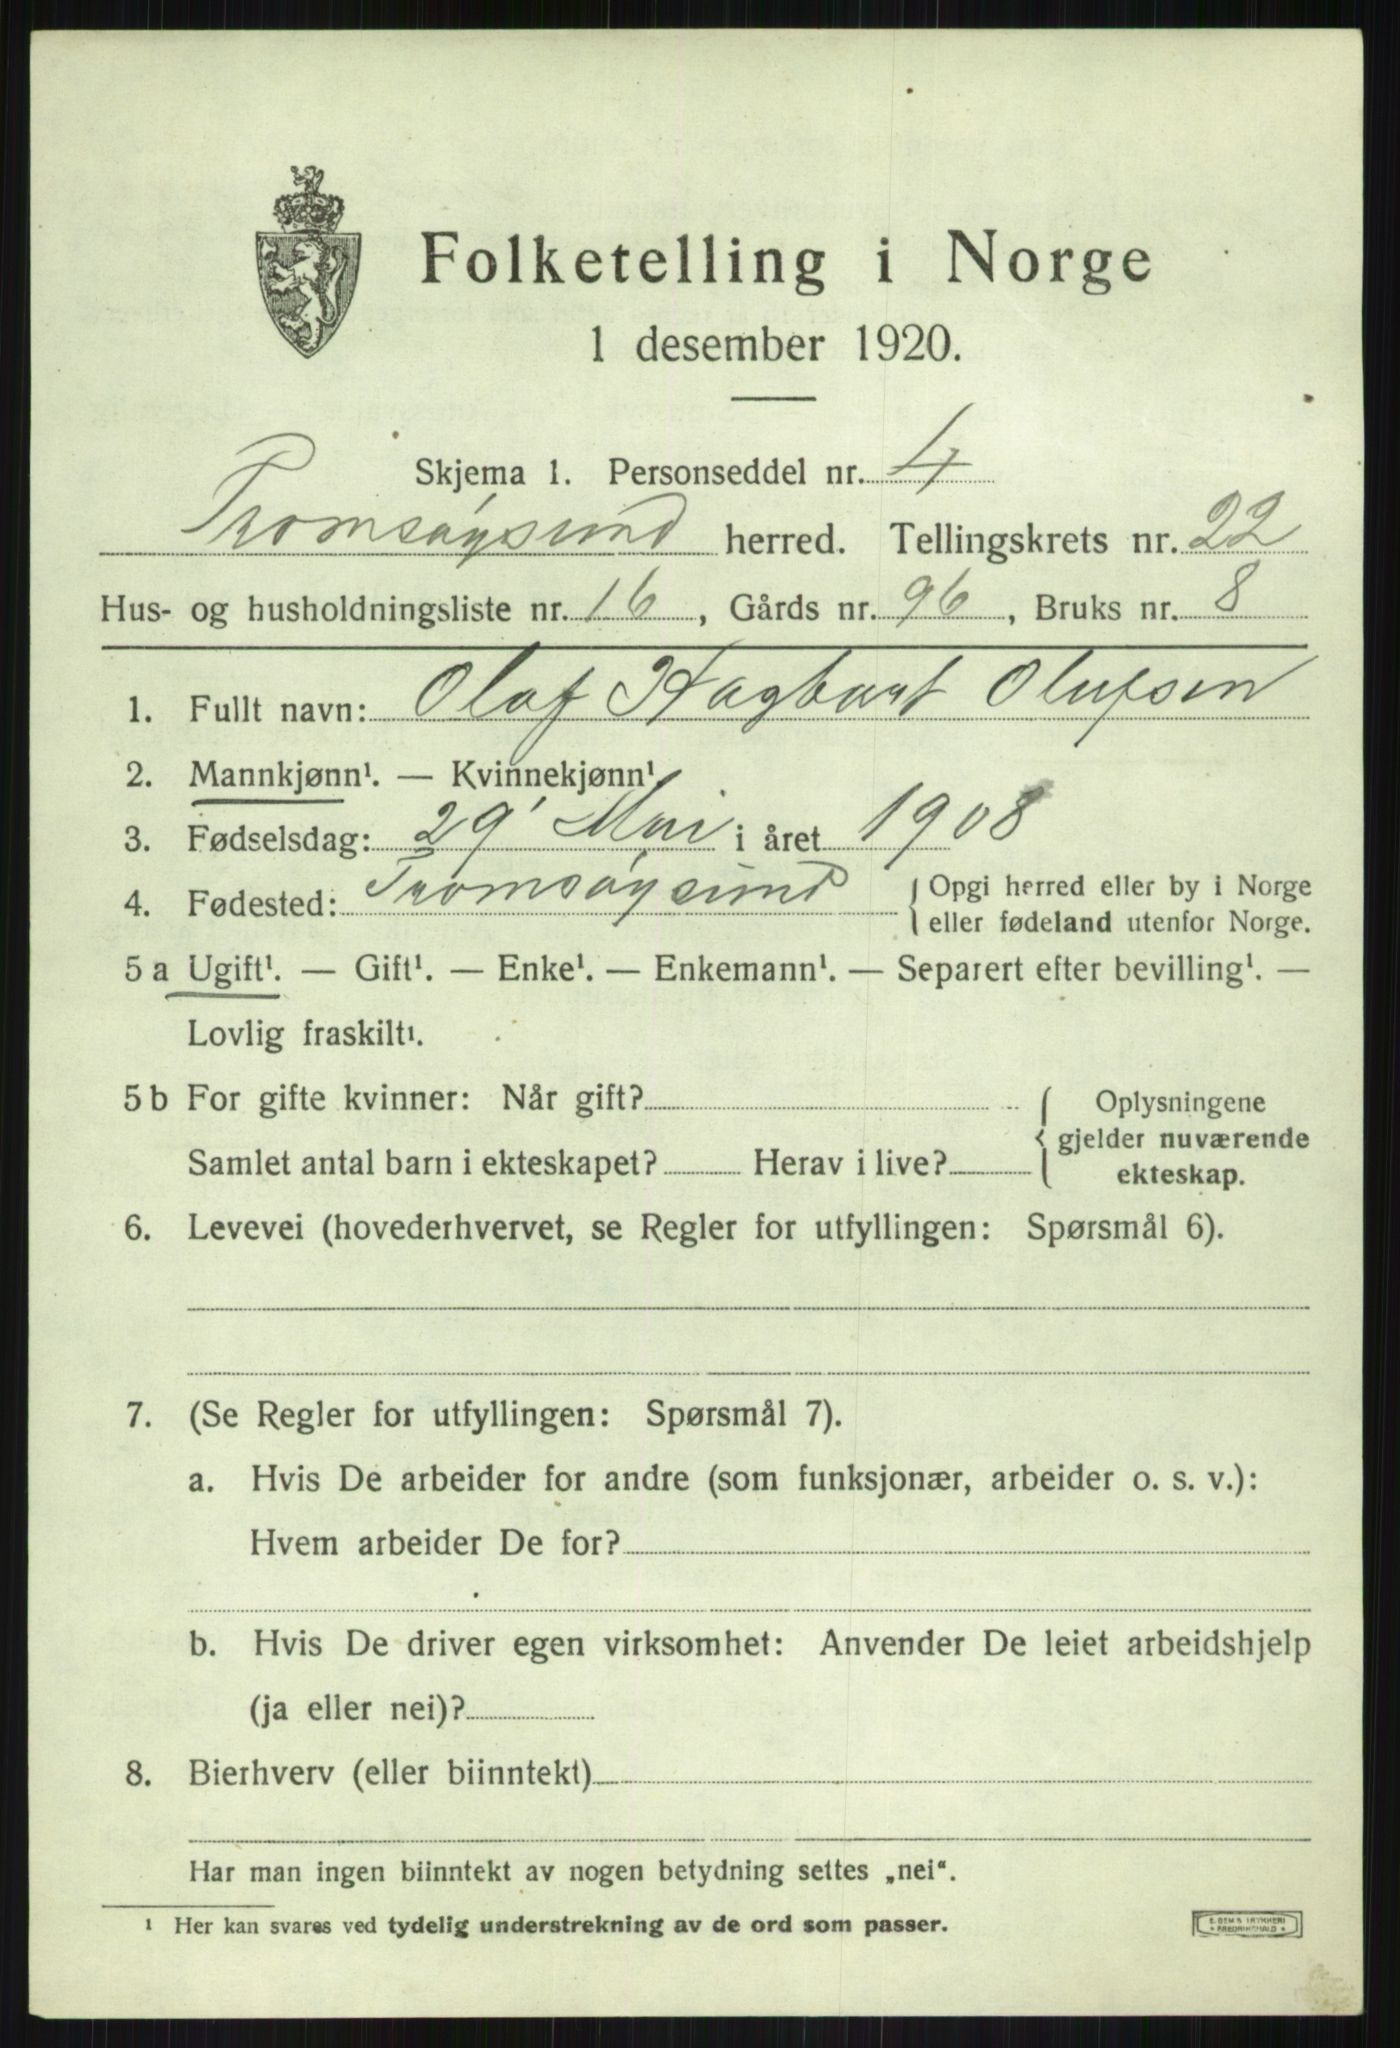 Folketelling i Norge
1 desember 1920.
Skjema 1. Personseddel nr. 4
Tromsøysund herred. Tellingskrets nr. 22
Hus- og husholdningsliste nr. 16, Gårds nr. 96, Bruks nr. 8
1. Fullt navn: Olaf Hagbart Olufsen
2. Mannkjønn¹. — Kvinnekjønn¹.
3. Fødselsdag: 29' Mai i året 1908
4. Fødested: Tromsøysund { Opgi herred eller by i Norge
eller fødeland utenfor Norge.
5 a Ugift¹. — Gift¹. — Enke¹. — Enkemann¹. — Separert efter bevilling¹. —
Lovlig fraskilt¹.
5 b For gifte kvinner: Når gift? { Oplysningene
gjelder nuværende
Samlet antal barn i ekteskapet? Herav i live? ekteskap.
6. Levevei (hovederhvervet, se Regler for utfyllingen: Spørsmål 6).
7. (Se Regler for utfyllingen: Spørsmål 7).
a. Hvis De arbeider for andre (som funksjonær, arbeider o. s. v.):
Hvem arbeider De for?
b. Hvis De driver egen virksomhet: Anvender De leiet arbeidshjelp
(ja eller nei)?
8. Bierhverv (eller biinntekt)
Har man ingen biinntekt av nogen betydning settes „nei“.
¹ Her kan svares ved tydelig understrekning av de ord som passer.